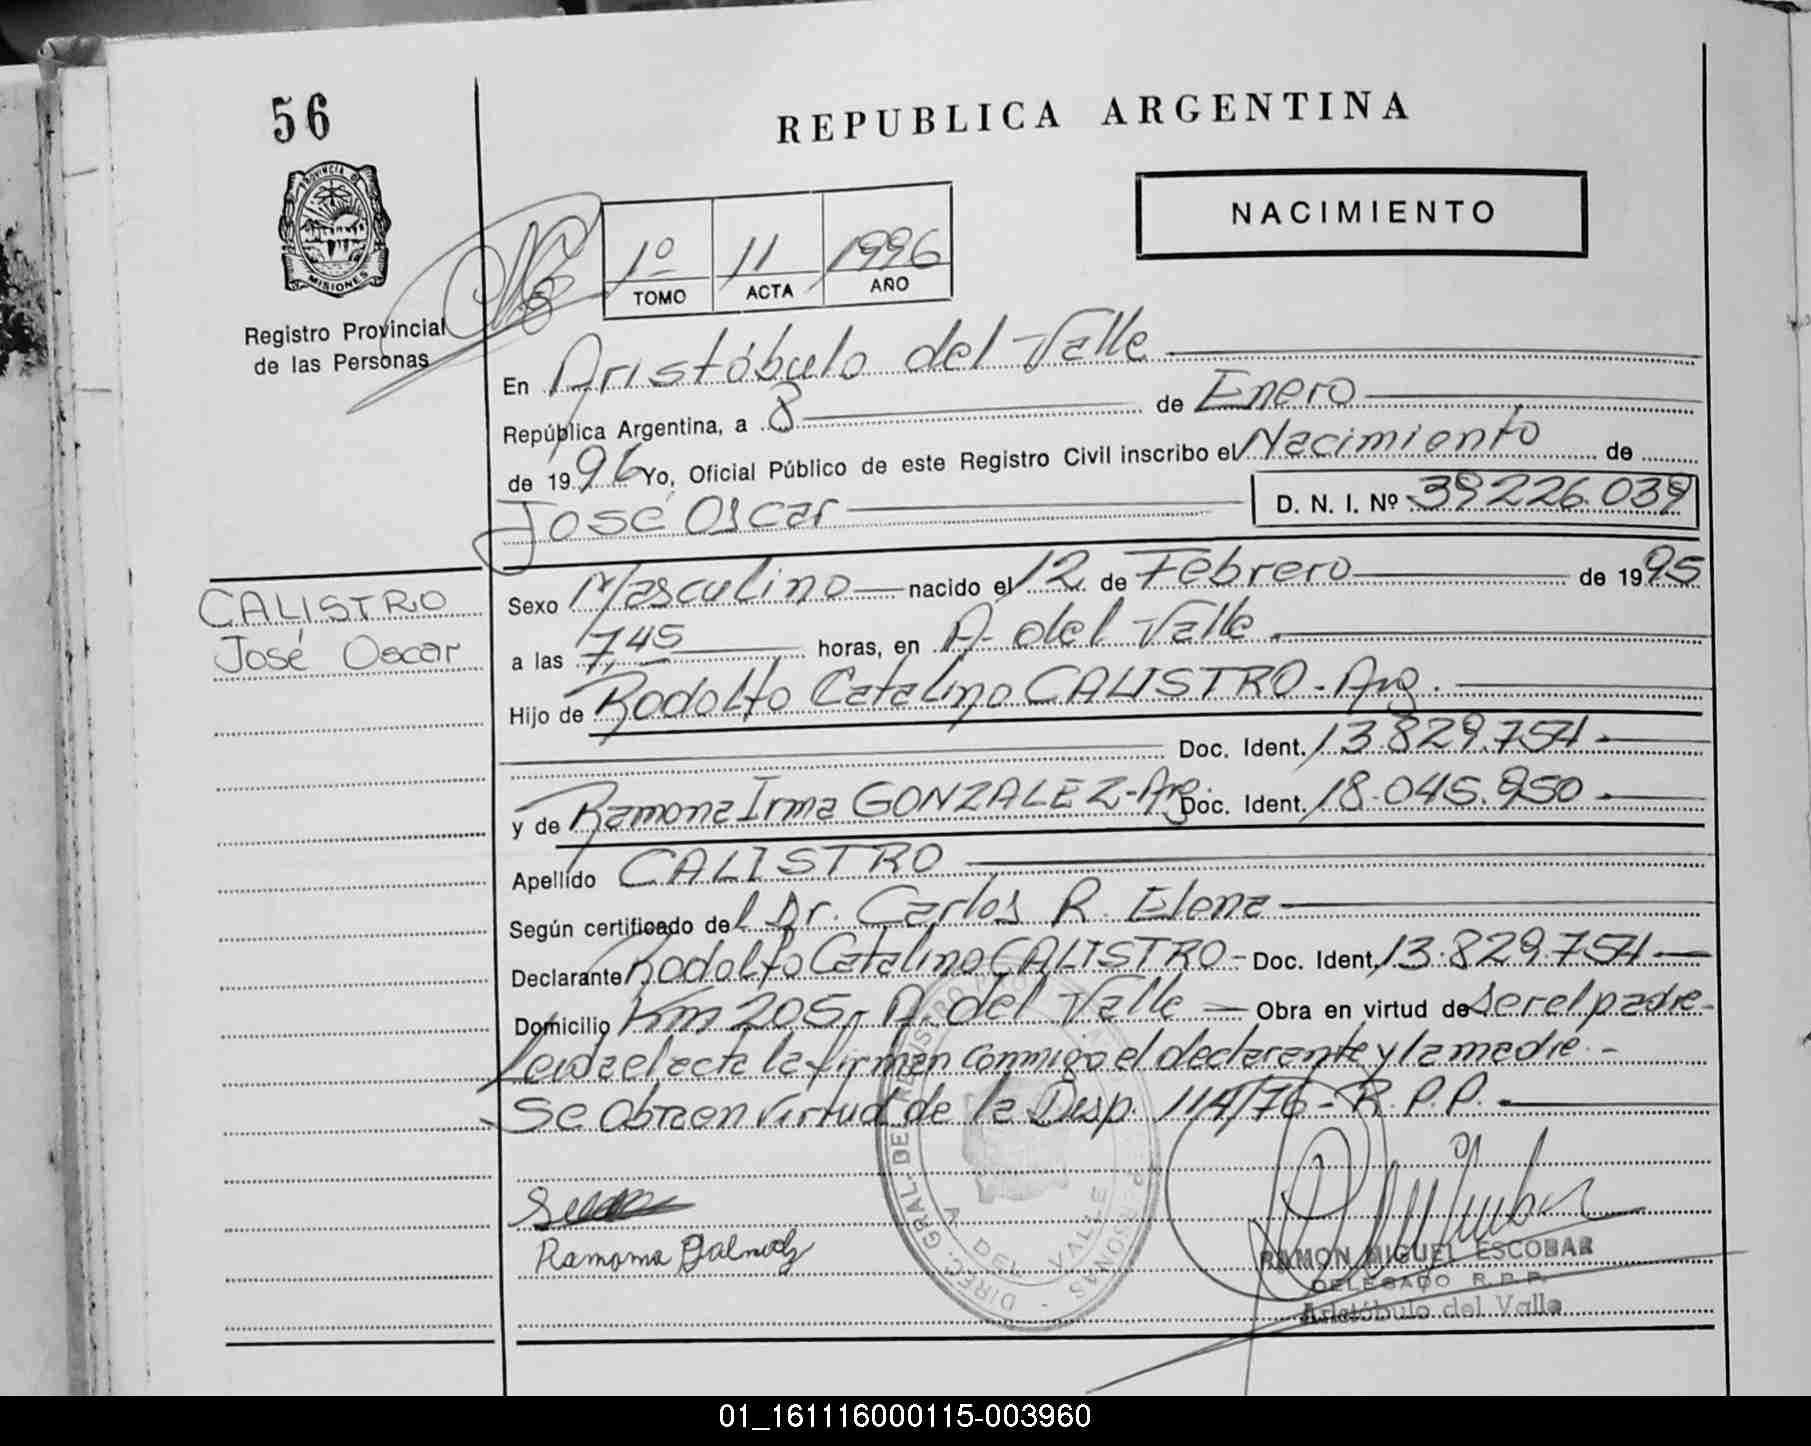 56
REPUBLICA ARGENTINA
PROVINCIA DE
MISIONES
Registro Provincial
de las Personas
NACIMIENTO
1º 11 1996
TOMO ACTA AÑO
En Aristóbulo del Valle
República Argentina, a 8 de Enero
de 1996 Yo, Oficial Público de este Registro Civil inscribo el Nacimiento de
José Oscar D. N. I. Nº 39226.039
CALISTRO
José Oscar
Sexo Masculino nacido el 12 de Febrero de 1995
a las 7,45 horas, en A. del Valle
Hijo de Rodolfo Catalino CALISTRO - Arg.
Doc. Ident. 13.829.754
y de Ramona Irma GONZALEZ - Arg. Doc. Ident. 18.045.950
Apellido CALISTRO
Según certificado del Dr. Carlos R. Elena
Declarante Rodolfo Catalino CALISTRO - Doc. Ident. 13.829.754
Domicilio Km 205, A. del Valle Obra en virtud de ser el padre -
Leida el acta la firman conmigo el declarante y la madre. -
Se obra en virtud de la Disp. 114/76 - R.P.P.
Ramona
RAMON MIGUEL ESCOBAR
DELEGADO R.P.P.
Aristóbulo del Valle
A. DEL VALLE
01_161116000115-003960